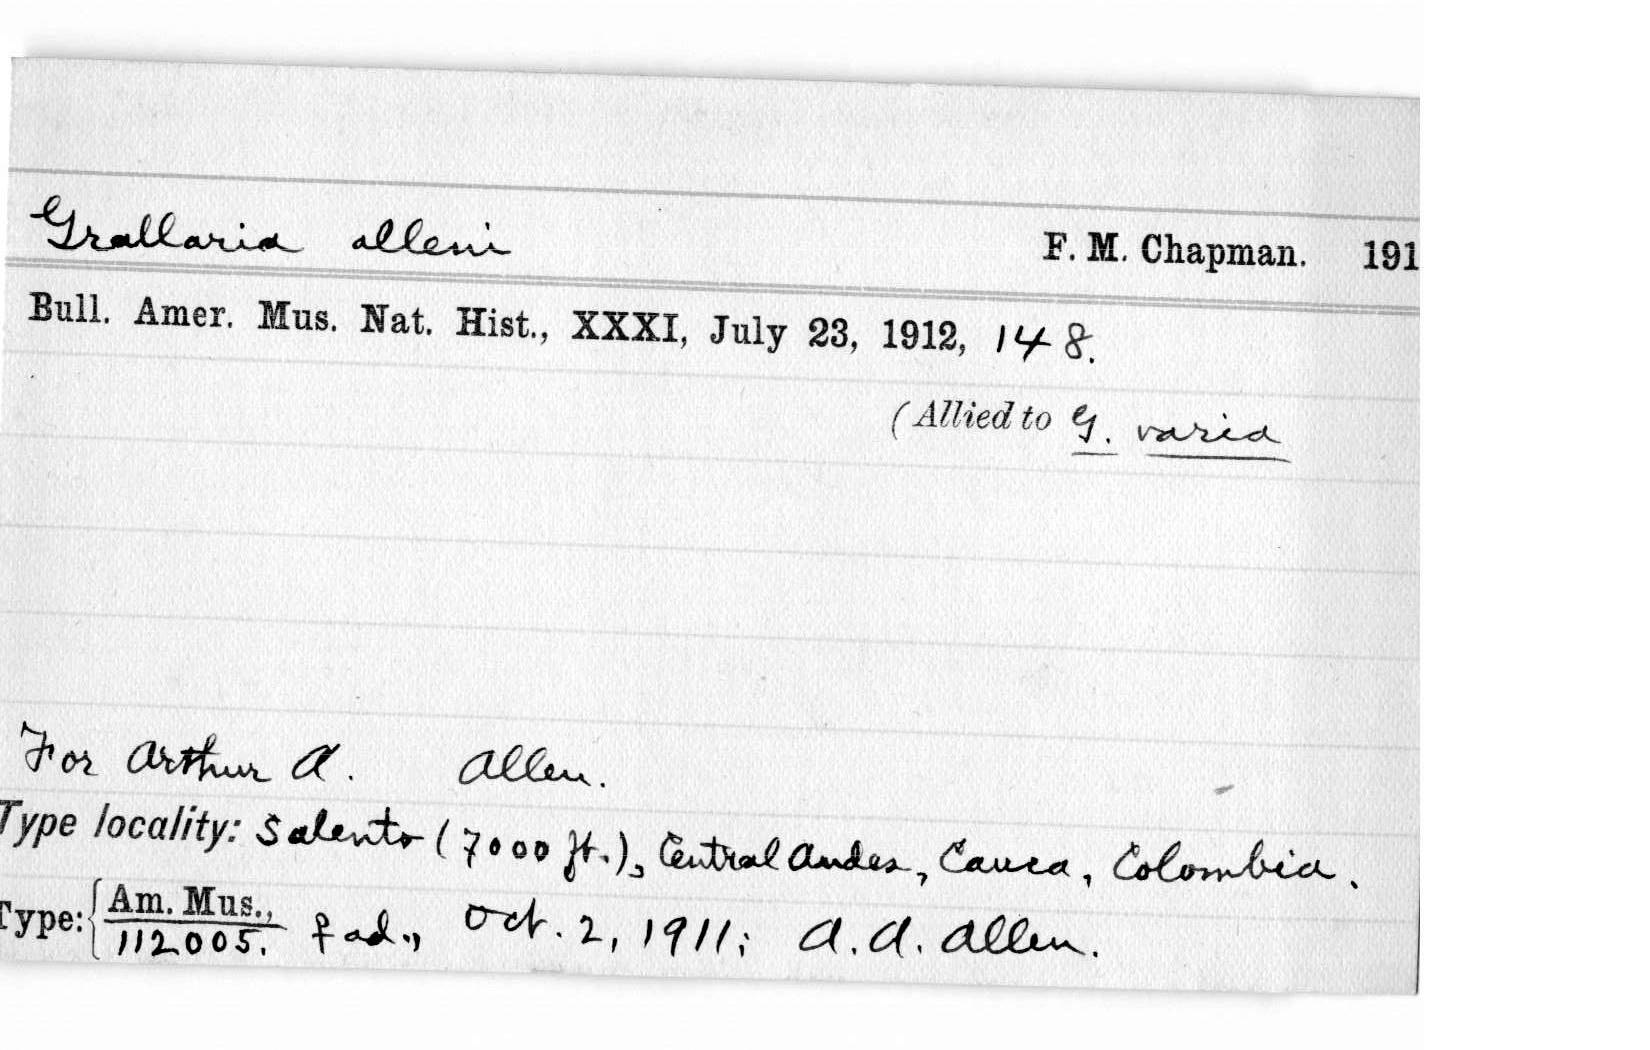 Grallaria alleni F. M. Chapman. 191
Bull. Amer. Mus. Nat. Hist., XXXI, July 23, 1912, 148.
(Allied to G. varia
For Arthur A. Allen.
Type locality: Salento (7000 ft.), Central Andes, Cauca, Colombia.
Type: { Am. Mus.,
112005. ♀ ad., Oct. 2, 1911; A. A. Allen.